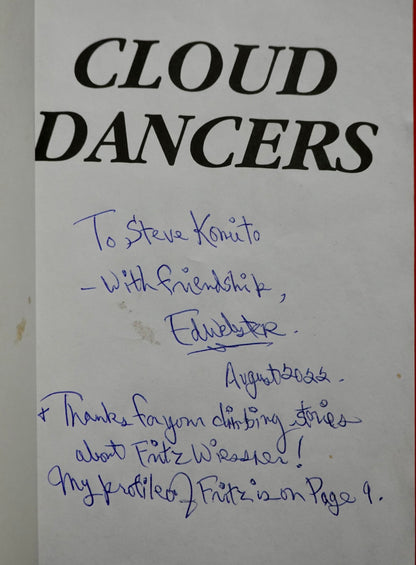 CLOUD
DANCERS
To Steve Komito
- With friendship,
Ed Webster.
August 2022.
+ Thanks for your climbing stories
about Fritz Wiessner!
My profile of Fritz is on Page 9.